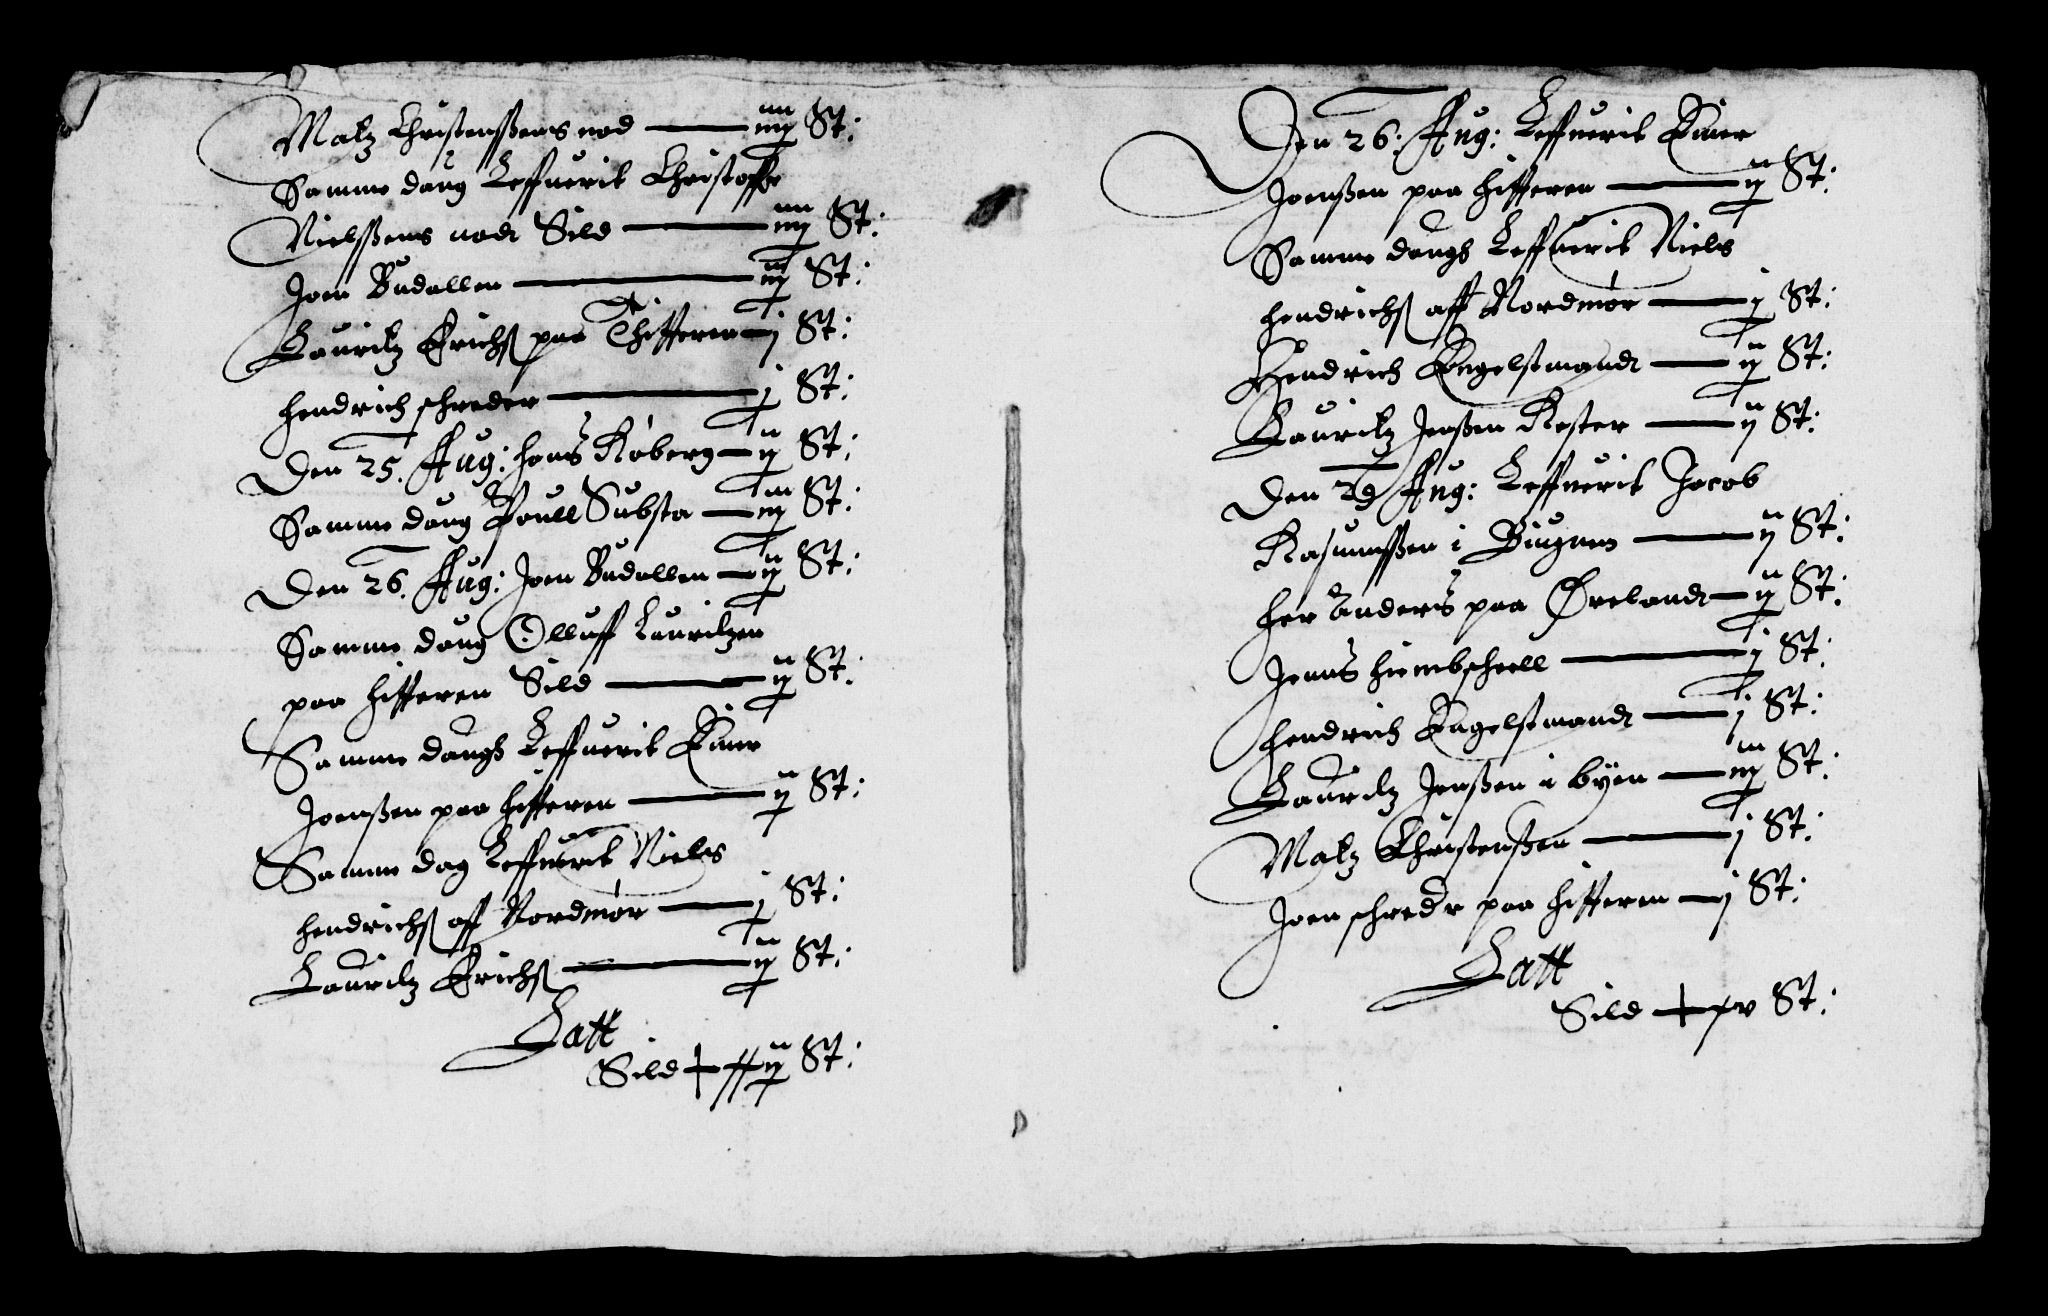 Matz Christenssens nod — iiij St:
Samme daug Leffuerit Christoffer
Nielssens nodt Sild — iiij St:
Joen Budallen — iij St:
Lauritz Erichs paa Hitteren — j St:
Hendrich schreder — j St:
Den 25. Aug: Hans Røberg — ij St:
Samme daug Poull Substa — iij St:
Den 26. Aug: Joen Budallen — ij St:
Samme daug Olluff Lauritzen
paa Hitteren Sild — ij St:
Samme daugh Leffuerit Einer
Joenssen paa Hitteren — ij St:
Samme dag Leffuerit Niels
Hendrichs aff Nordmør — j St:
Lauritz Erichs — ij St:
Latt
Sild St:
Den 26. Aug: Leffuerit Einer
Joenssen paa Hitteren — ij St:
Samme daugh Leffuerit Niels
Hendrichs aff Nordmør — j St:
Hendrich Engelstmandt — ij St:
Lauritz Jenssen Rester — ij St:
Den 29 Aug: Leffuerit Jacob
Rasmussen i Biugnen — ij St:
Her Anders paa Ørelandt — ij St:
Jenns — j St:
Hendrich Engelstmandt — j St:
Lauritz Jenssen i byen — iij St:
Matz Christenssen — j St:
Joen schredr paa Hitteren — j St:
Latt
Sild — xv St: